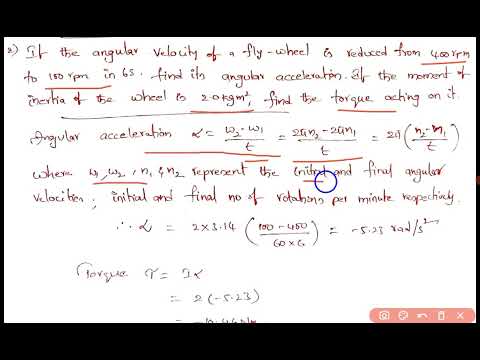 2) If the angular velocity of a fly-wheel is reduced from 400rpm
to 100rpm in 6s. find its angular acceleration. If the moment of
inertia of the wheel is 2.0kgm², find the torque acting on it.
Angular acceleration α = (ω2-ω1)/t = (2πn2-2πn1)/t = 2π((n2-n1)/t)
where ω1,ω2, n1 & n2 represent the initial and final angular
velocities, initial and final no of rotations per minute respectively.
∴ α = 2×3.14 ((100-400)/(60×6)) = -5.23 rad/s²
Torque τ = Iα
= 2(-5.23)